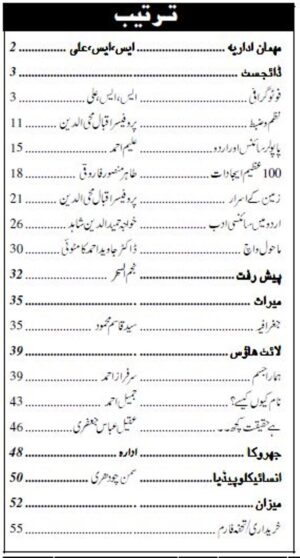 ترتیب
مہمان اداریہ ........ ایس،ایس،علی ........ 2
ڈائجسٹ ........ 3
فوٹوگرافی ........ ایس،ایس،علی ........ 3
نظم وضبط ........ پروفیسراقبال محی الدین ........ 11
پاپولرسائنس اوراردو ........ علیم احمد ........ 15
100 عظیم ایجادات ........ طاہرمنصورفاروقی ........ 18
زمین کے اسرار ........ پروفیسراقبال محی الدین ........ 21
اردومیں سائنسی ادب ........ خواجہ حمیدالدین شاہد ........ 26
ماحول واچ ........ ڈاکٹرجاویداحمدکامٹوئی ........ 30
پیش رفت ........ نجم السحر ........ 32
میراث ........ 35
جغرافیہ ........ سیدقاسم محمود ........ 35
لائٹ ہاؤس ........ 39
ہماراجسم ........ سرفرازاحمد ........ 39
نام کیوں کیسے؟ ........ جمیل احمد ........ 43
ہے حقیقت کچھ۔۔ ........ عقیل عباس جعفری ........ 46
جھروکا ........ ادارہ ........ 48
انسائیکلوپیڈیا ........ سمن چودھری ........ 50
میزان ........ 52
خریداری/تحفہ فارم ........ 55